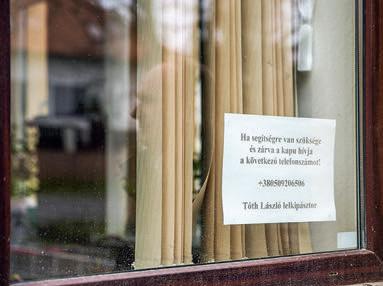 Ha segítségre van szüksége
és zárva a kapu hívja
a következő telefonszámot!
+380509206506
Tóth László lelkipásztor